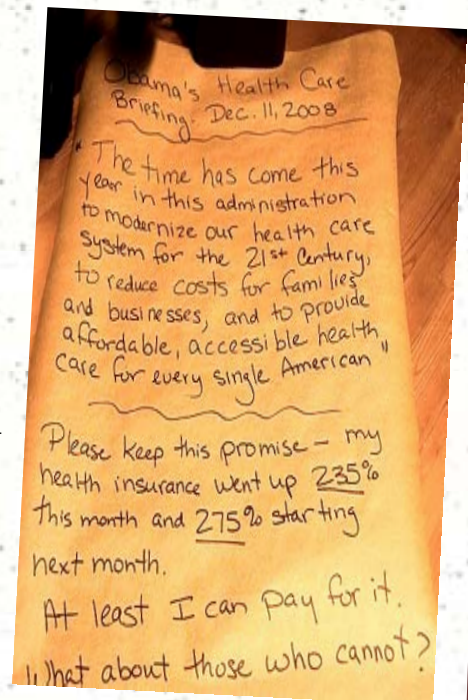 Obama's Health Care
Briefing. Dec. 11, 2008
"The time has come this
year in this administration
to modernize our health care
system for the 21st Century,
to reduce costs for families
and businesses, and to provide
affordable, accessible health
care for every single American"
Please keep this promise – my
health insurance went up 235%
this month and 275% starting
next month.
At least I can pay for it.
What about those who cannot?